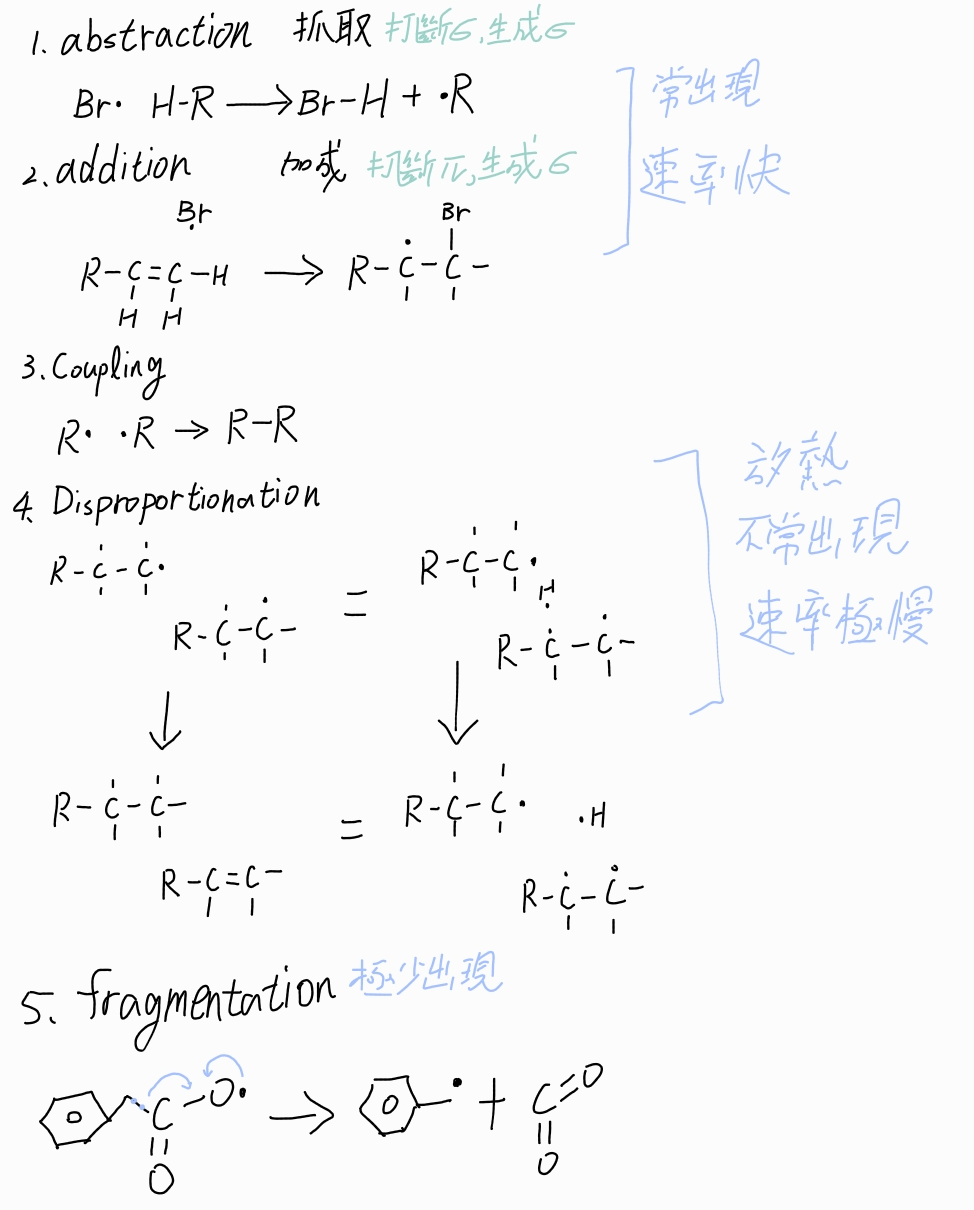 1. abstraction 抓取 打斷σ,生成σ
Br· H-R → Br-H + ·R
常出現
2. addition 加成 打斷π,生成σ
速率快
Br
Br
R-C=C-H → R-C-C-
H H
3. Coupling
R· ·R → R-R
放熱
4. Disproportionation
不常出現
R-C-C· R-C-C·
H
R-C-C- = R-C-C-
速率極慢
↓ ↓
R-C-C- = R-C-C· ·H
R-C=C- R-C-C-
5. fragmentation 極少出現
C-O· → · + C=O
O O